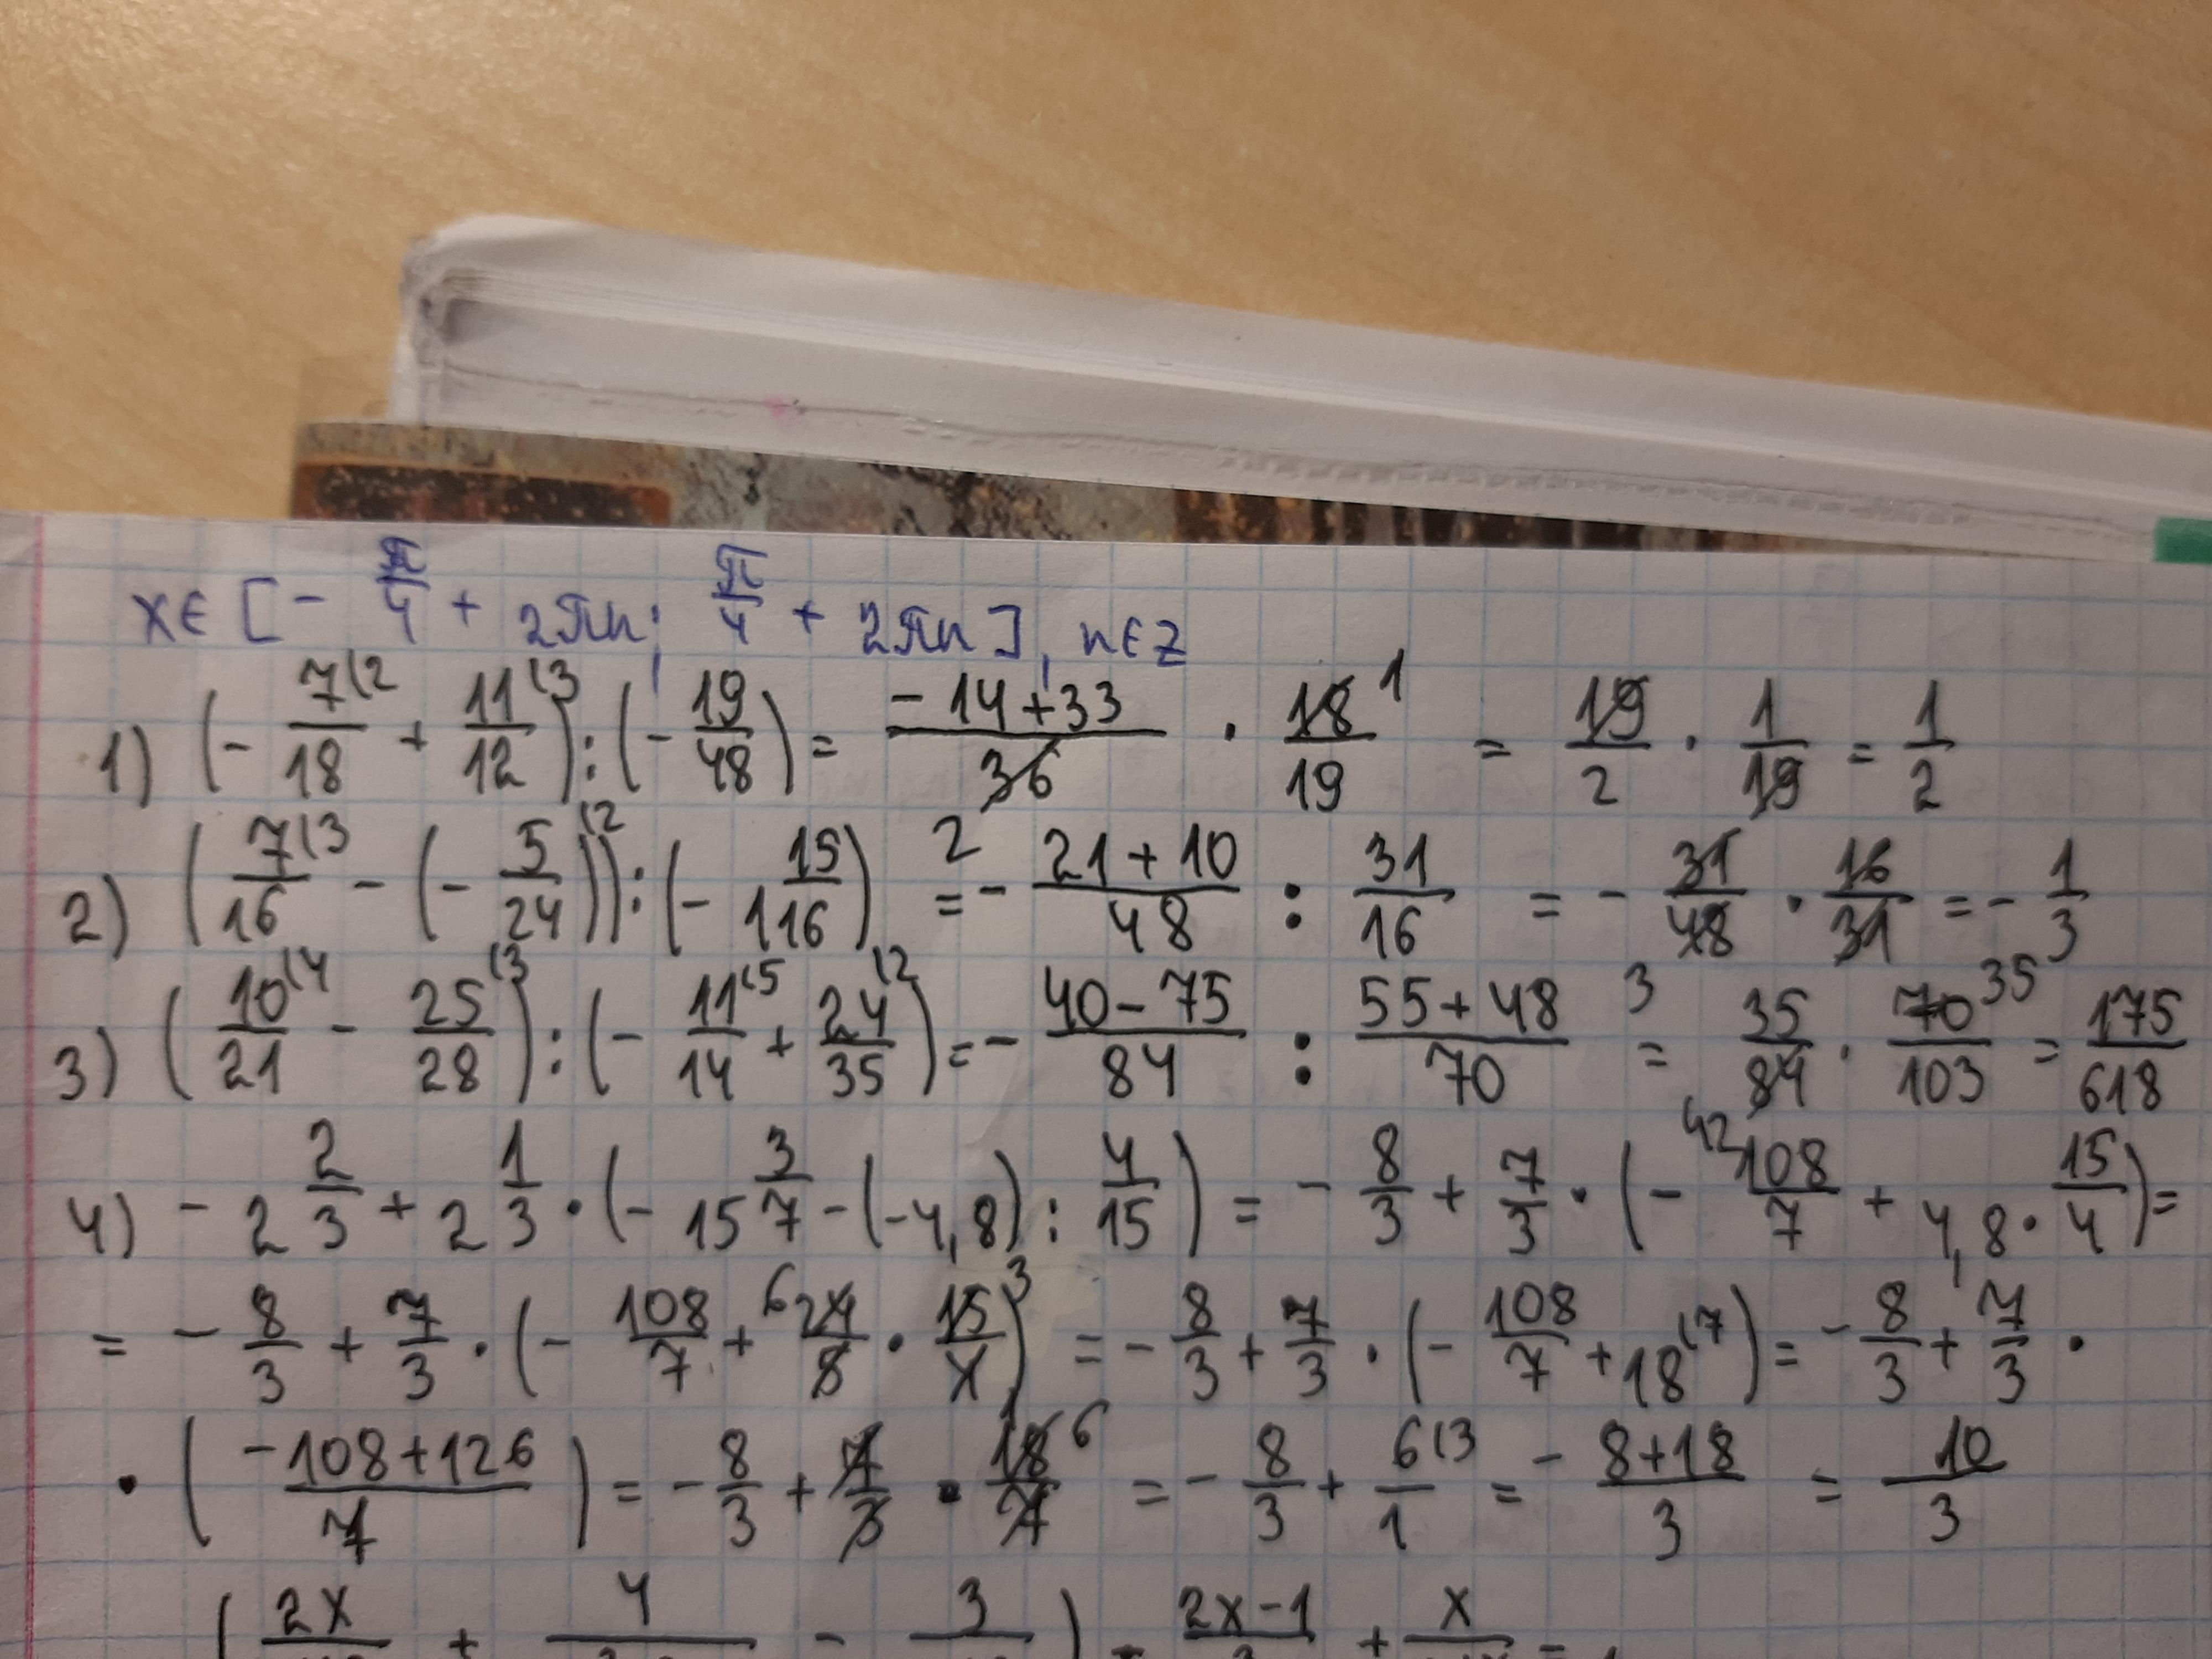 x∈[-π/4 + 2πn; π/4 + 2πn], n∈Z
1) (- 7(2/18 + 11(3/12) : (- 19/48) = -14+33/36 · 18 1/19 = 19/2 · 1/19 = 1/2
2) (7(3/16 - (- 5(2/24)) : (- 1 15/16) 2 = - 21+10/48 : 31/16 = - 31/48 · 16/31 = - 1/3
3) (10(4/21 - 25(3/28) : (- 11(5/14 + 24(2/35) = - 40-75/84 : 55+48/70 3 = 35/84 · 70 35/103 = 175/618
4) - 2 2/3 + 2 1/3 · (- 15 3/7 - (-4,8) : 4/15) = - 8/3 + 7/3 · (- 42 108/7 + 4,8 · 15/4) =
= - 8/3 + 7/3 · (- 108/7 + 6 24/5 · 15/4) 3 = - 8/3 + 7/3 · (- 108/7 + 18(7) = - 8/3 + 7/3 ·
· (-108+126/7) = - 8/3 + 7/3 · 18 6/7 = - 8/3 + 6(3/1 = - 8+18/3 = 10/3
( 2x + 4 - 3 ) 2x-1 + x =